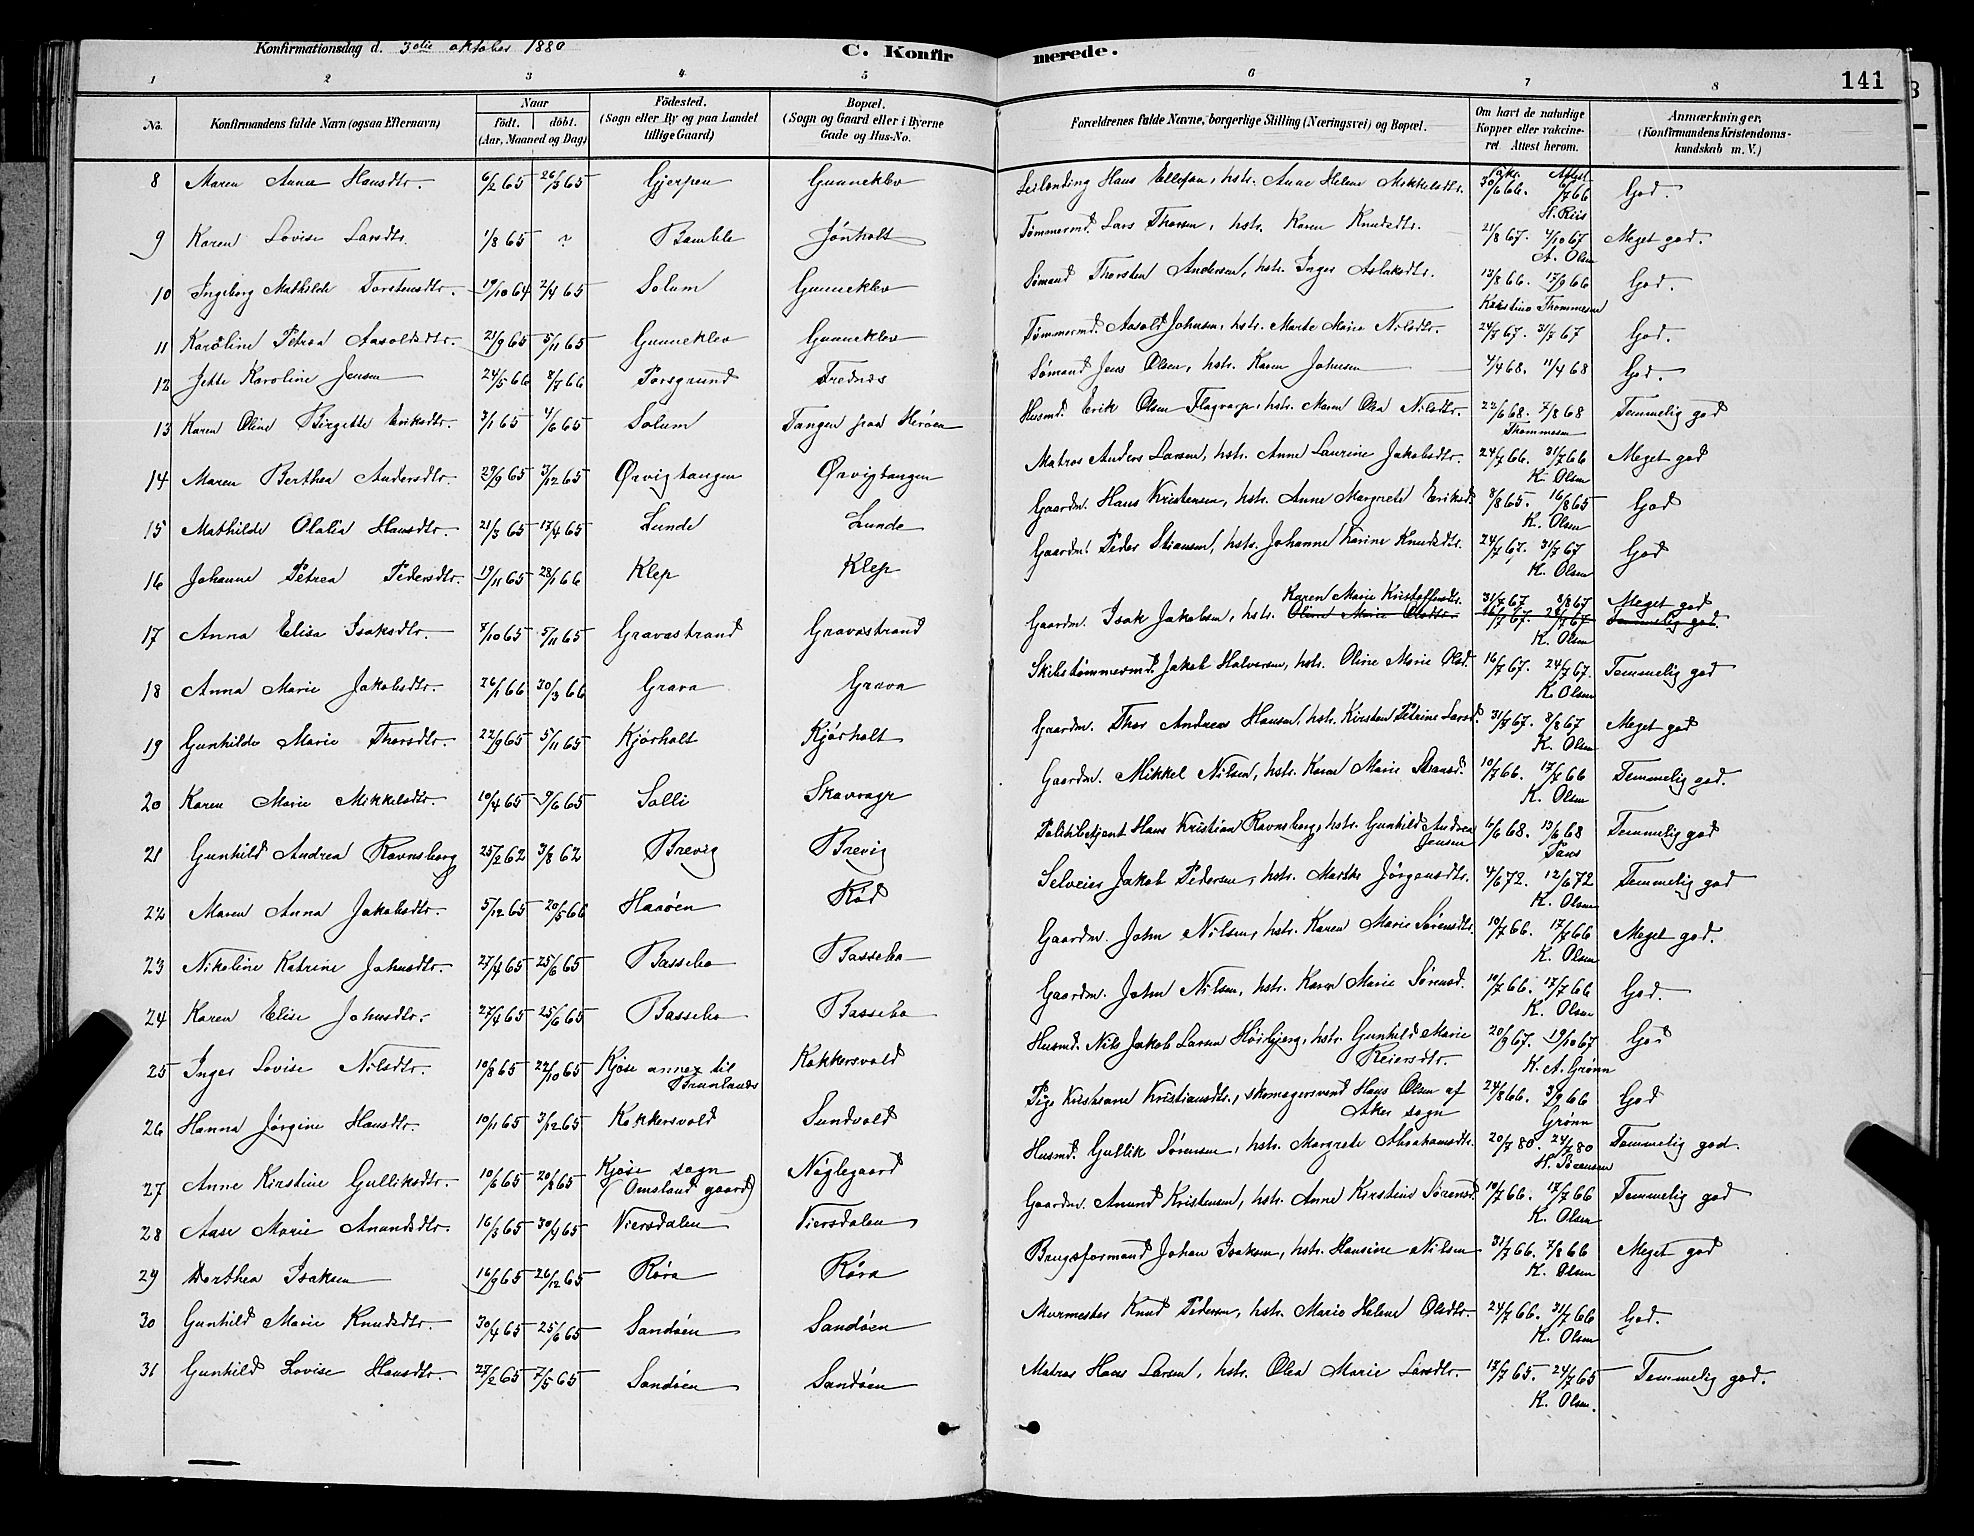 Konfirmationsdag d. 3die oktober 1880
C. Konfirmerede.
141
1 2 3 4 5 6 7 8
No.
Konfirmandens fulde Navn (ogsaa Efternavn)
Naar
födt. döbt.
(Aar, Maaned og Dag)
Födested.
(Sogn eller By og paa Landet
tillige Gaard)
Bopæl.
(Sogn og Gaard eller i Byerne
Gade og Hus-No.
Forældrenes fulde Navne, borgerlige Stilling (Næringsvei) og Bopæl.
Om havt de naturlige
Kopper eller vakcine-
ret Attest herom.
Anmærkninger,
(Konfirmandens Kristendoms-
kundskab m. V.)
Vakc. Attest
8 Maren Anne Hansdtr. 6/2 65 26/3 65 Gjerpen Gunneklev Leilending Hans Ellefsen, hstr. Anne Helene Mikkelsdtr. 30/6 66. 6/7 66 God.
H. Riis
9 Karen Lovise Larsdtr. 1/8 65 ? Bamble Jönholt Tømmermd. Lars Thorsen, hstr. Karen Knudsdtr. 21/8 67. 4/10 67 Meget god.
A. Olsen
10 Ingeborg Mathilde Torstensdtr. 19/10 64 2/4 65 Solum Gunneklev Sømand Thorsten Andersen, hstr. Inger Aslaksdtr. 13/8 66. 17/9 66 God.
Kristine Thommesen
11 Karoline Petrea Aasoldsdtr. 21/9 65 5/11 65 Gunneklev Gunneklev Tømmermd. Aasold Johnsen, hstr. Marte Marie Nilsdtr. 24/7 67. 31/7 67 God.
12 Jette Karoline Jensen 24/5 66 8/7 66 Porsgrund Trednes Sømand Jens Olsen, hstr. Karen Johnsen 4/4 68. 11/4 68 God.
13 Karen Oline Birgitte Eriksdtr. 3/1 65 4/6 65 Solum Tangen paa Herøen Husmd. Erik Olsen Flagvarp, hstr. Maren Olea Nilsdtr. 22/6 68. 7/8 68 Temmelig god
Thommesen
14 Maren Berthea Andersdtr. 29/9 65 3/12 65 Ørvigtangen Ørvigtangen Matros Anders Larsen, hstr. Anne Laurine Jakobsdtr. 24/7 66. 31/7 66 Meget god
K. Olsen
15 Mathilde Olalia Hansdtr. 21/3 65 17/4 65 Lunde Lunde Gaardm. Hans Kristensen, hstr. Anne Margrete Eriksd. 8/8 65. 16/8 65 God
K. Olsen
16 Johanne Petrea Pedersdtr. 19/11 65 28/1 66 Klep Klep Gaardm. Peder Stiansen, hstr. Johanne Karine Knudsdtr. 24/7 67. 31/7 67 God
K. Olsen
Karen Marie Kristoffersdtr. 31/7 67 8/8 67 Meget god
17 Anna Elise Isaksdtr. 7/10 65 5/11 65 Gravastrand Gravastrand Gaardm. Isak Jakobsen, hstr. Oline Marie Olsdtr. 16/7 67. 24/7 67 Temmelig god.
K. Olsen
18 Anna Marie Jakobsdtr. 26/1 66 30/3 66 Grava Grava Skibstømmermd. Jakob Halvorsen, hstr. Oline Marie Olsd. 16/7 67. 24/7 67. Temmelig god
K. Olsen
19 Gunhilde Marie Thorsdtr. 22/9 65 5/11 65 Kjørholt Kjørholt Gaardm. Thor Andreas Hansen, hstr. Kirsten Petrine Larsd. 31/7 67. 8/8 67 Meget god
K. Olsen
20 Karen Marie Mikkelsdtr. 10/4 65 9/6 65 Solli Skavrager Gaardm. Mikkel Nilsen, hstr. Karen Marie Stiansd. 10/7 66. 17/7 66 Temmelig god.
K. Olsen
21 Gunhild Andrea Ravnsborg 25/2 62 3/8 62 Brevig Brevig Politibetjent Hans Kristian Ravnsborg, hstr. Gunhild Andrea Jensen 6/6 68. 13/6 68 Temmelig god
22 Maren Anna Jakobsdtr. 5/12 65 20/5 66 Haaøen Rød Selveier Jakob Pedersen, hstr. Marthe Jørgensdtr. 4/6 72. 12/6 72 Temmelig god
K. Olsen
23 Nikoline Katrine Johnsdtr. 27/4 65 25/6 65 Bassebo Bassebo Gaardm. John Nilsen, hstr. Karen Marie Sørensdtr. 10/7 66. 17/7 66 Meget god.
K. Olsen
24 Karen Elise Johnsdtr. 27/4 65 25/6 65 Bassebo Bassebo Gaardm. John Nilsen, hstr. Karen Marie Sørensd. 10/7 66. 17/7 66 God.
K. Olsen
25 Inger Lovise Nilsdtr. 10/8 65 22/10 65 Kjøse annex til Brunlanæs Kokkersvold Husmd. Nils Jakob Larsen Høibjerg, hstr. Gunhild Marie Reiersdtr. 20/9 67. 19/10 67 God
K. A. Grønn
26 Hanna Jørgine Hansdtr. 10/11 65 3/12 65 Kokkersvold Sundvold Pige Kristiane Kristiansdtr., skomagersvend Hans Olsen af Aker sogn 24/8 66. 3/9 66 God
Grønn
27 Anne Kirstine Gulliksdtr. 10/6 65 20/8 65 Kjøse sogn (Omsland gaard) Nøglegaard Husmd. Gullik Sørensen, hstr. Margrete Abrahamsdtr. 20/7 80. 24/7 80 Temmelig god.
H. Sørensen
28 Aase Marie Anundsdtr. 16/3 65 30/4 65 Viersdalen Viersdalen Gaardm. Anund Kristensen, hstr. Anne Kirstine Sørensd. 10/7 66. 17/7 66 Temmelig god
K. Olsen
29 Dorthea Isaksen 16/9 65 26/12 65 Røra Røra Brugsformand Johan Isaksen, hstr. Hansine Nilsen 31/7 66. 7/8 66 Meget god
K. Olsen
30 Gunhild Marie Knudsdtr. 30/4 65 25/6 65 Sandøen Sandøen Murmester Knud Pedersen, hstr. Marie Helene Olsdtr. 24/7 66. 31/7 66 God.
K. Olsen
31 Gunhild Lovise Hansdtr. 27/2 65 7/5 65 Sandøen Sandøen Matros Hans Larsen, hstr. Olea Marie Larsdtr. 17/7 65. 24/7 65 Temmelig god.
K. Olsen.